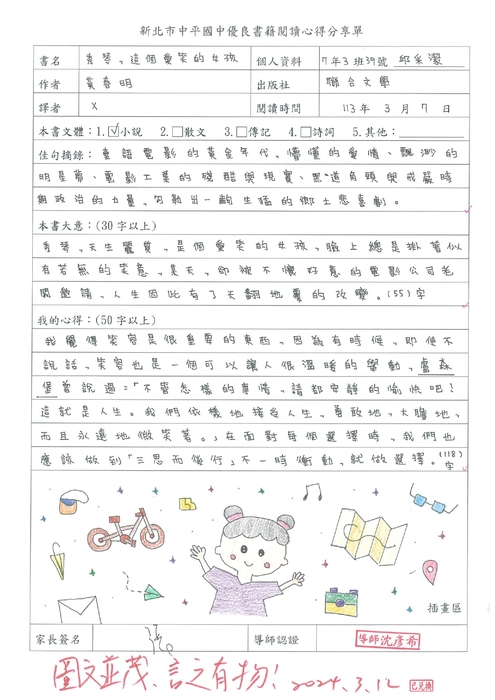 新北市中平國中優良書籍閱讀心得分享單
書名 秀琴,這個愛笑的女孩 個人資料 7年3班39號
作者 黃春明 出版社 聯合文學
譯者 X 閱讀時間 113年3月7日
本書文體:1.☑小說 2.□散文 3.□傳記 4.□詩詞 5.其他:
佳句摘錄:臺語電影的黃金年代、懵懂的愛情、飄渺的
明星夢、電影工業的殘酷與現實、黑道角頭與戒嚴時
期政治的力量,勾勒出一齣生猛的鄉土悲喜劇。
本書大意:(30字以上)
秀琴,天生麗質,是個愛笑的女孩,臉上總是掛著似
有若無的笑意,某天,卻被不懷好意的電影公司老
闆邀請,人生因此有了天翻地覆的改變。(55)字
我的心得:(50字以上)
我覺得笑容是很重要的東西,因為有時候,即使不
說話,笑容也是一個可以讓人很溫暖的舉動,盧森
堡曾說過:「不管怎樣的事情,請都安靜的愉快吧!
這就是人生。我們依樣地接受人生,勇敢地,大膽地,
而且永遠地微笑著。」在面對每個選擇時,我們也
應該做到「三思而後行」不一時衝動,就做選擇。(118)
字
插畫區
家長簽名 導師認證 導師沈彥希
圖文並茂、言之有物! 2024.3.12